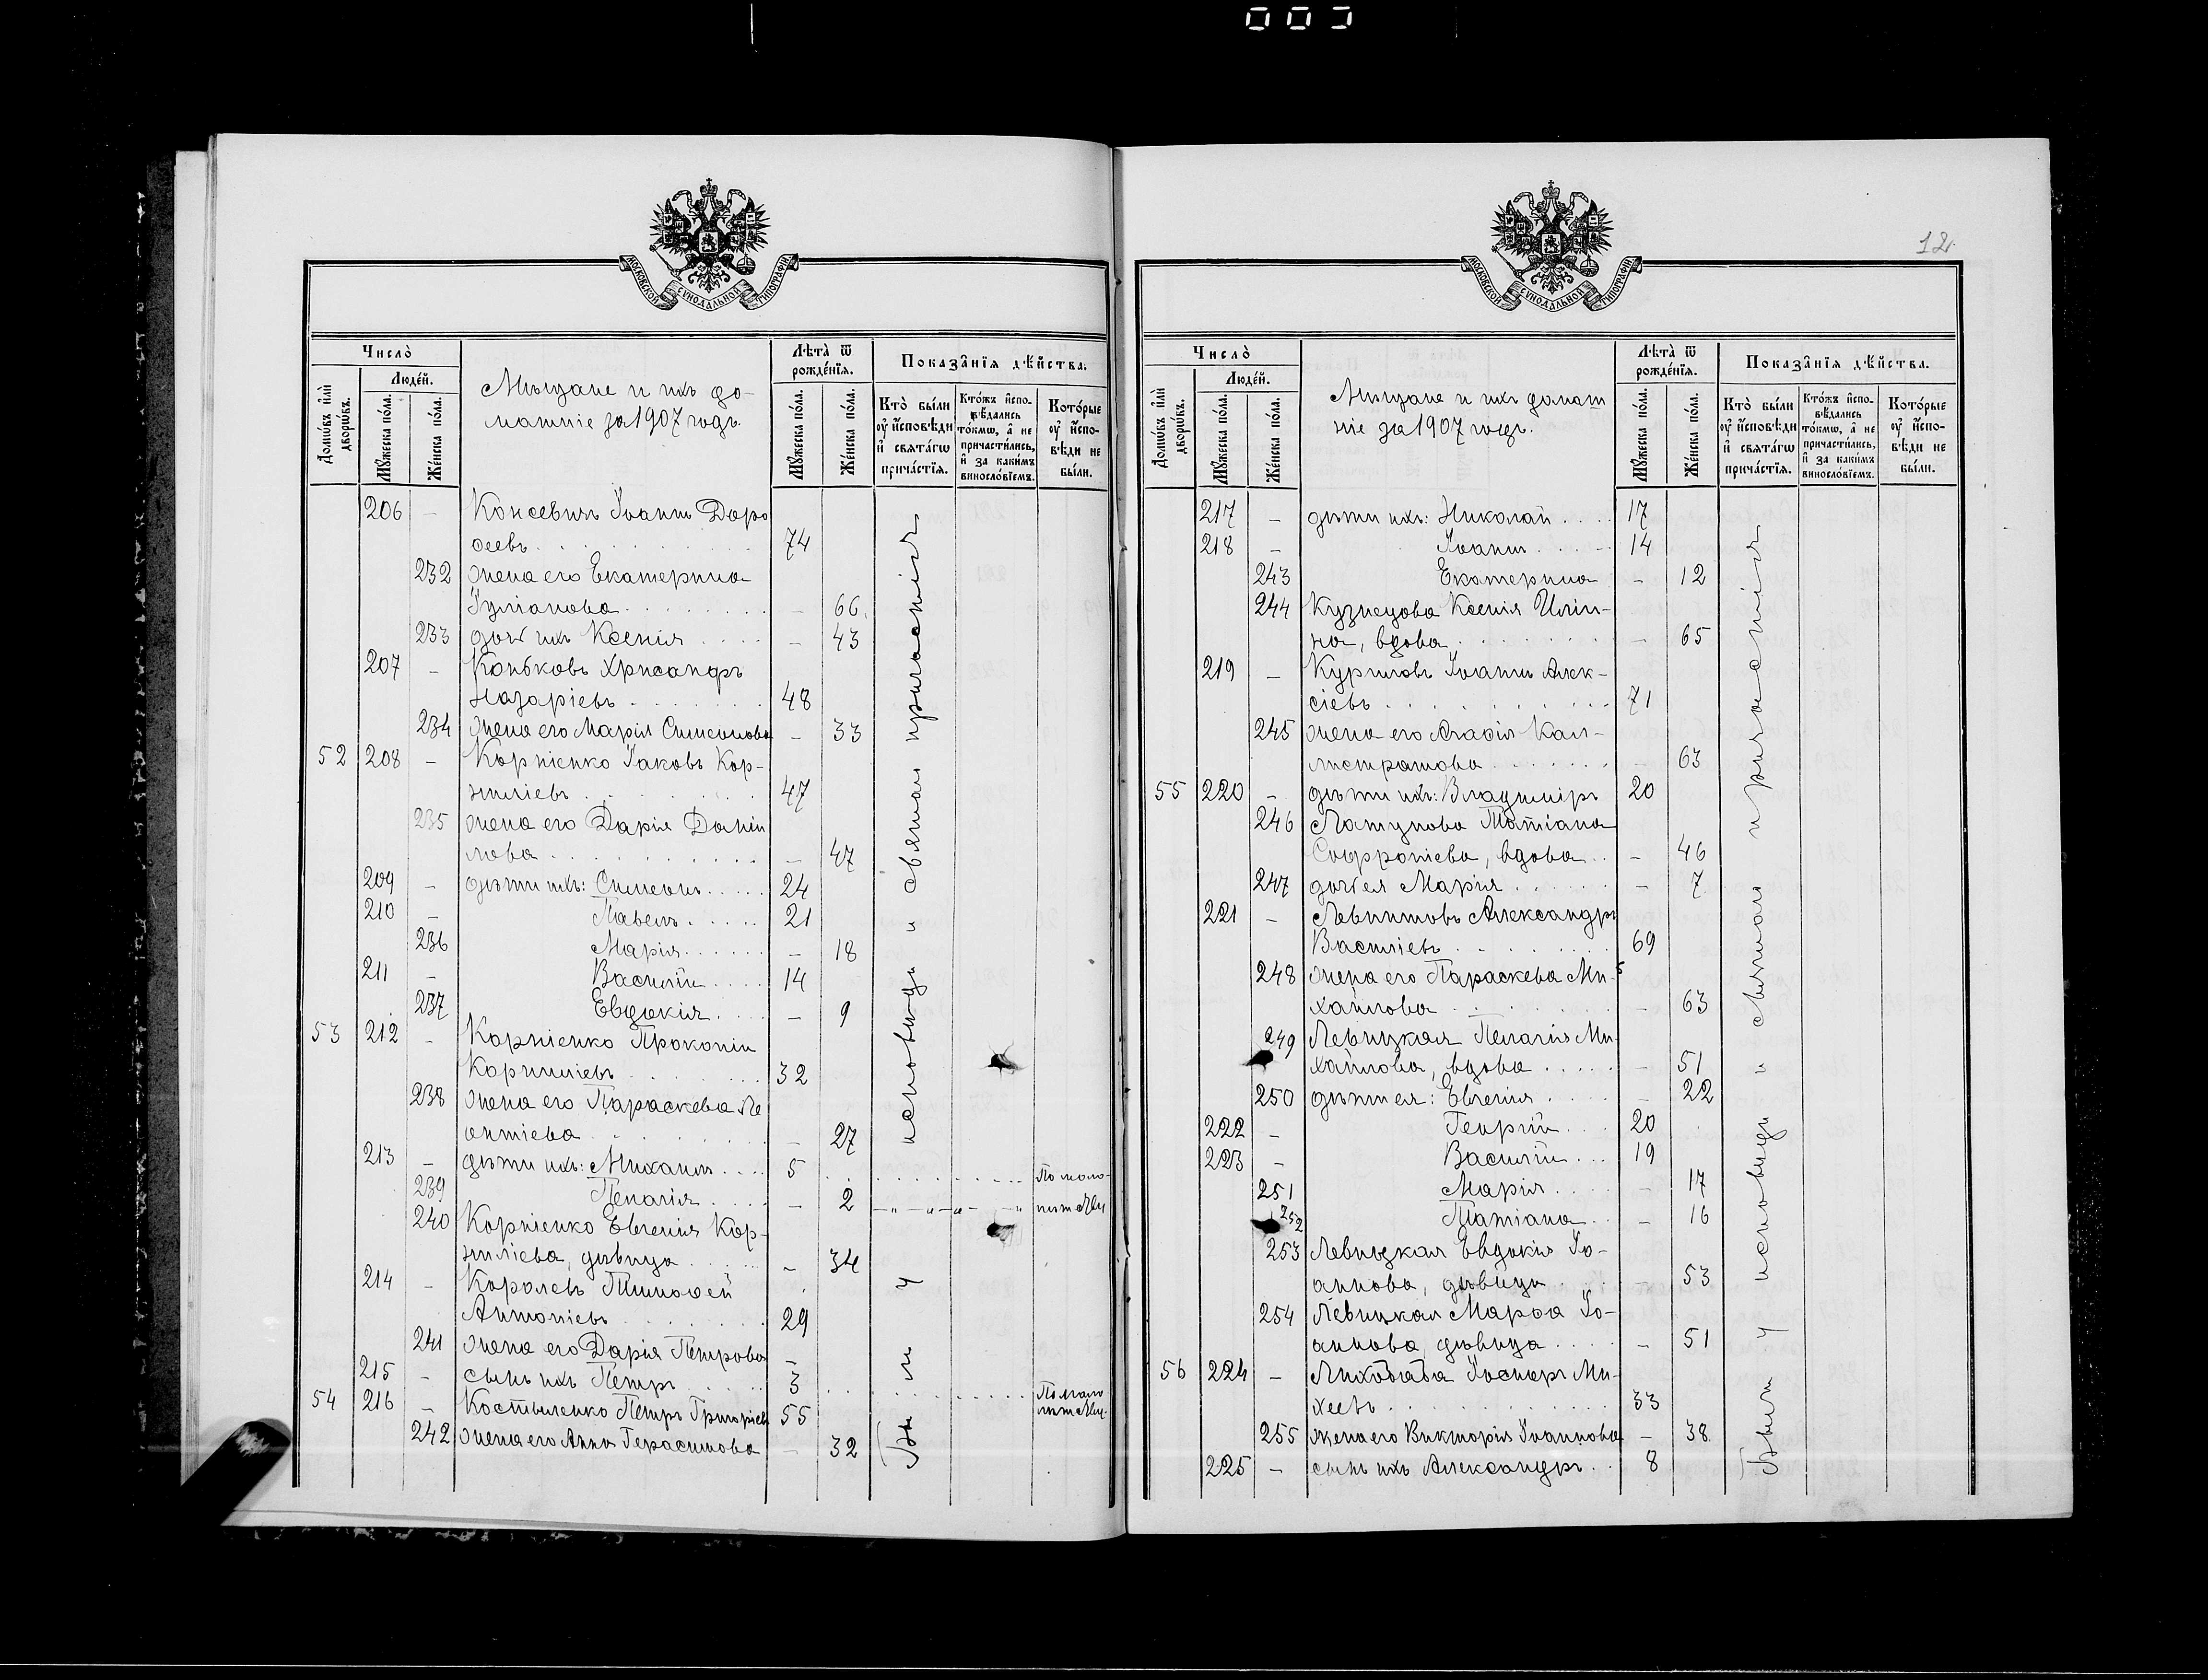 12.
МОСКОВСКОЙ СУНОДАЛЬНОЙ ТИПОГРАФІИ
Число̀
Домѡ́въ и҆лѝ дворѡ́въ.
Люде́й.
Мꙋ́жеска по́ла.
Же́нска по́ла.
Мѣщане и ихъ до-
машніе за 1907 годъ.
Лѣ́та ѿ рожде́нїѧ.
Мꙋ́жеска по́ла.
Же́нска по́ла.
Показа̑нїѧ дѣ́йства.
Кто̀ бы́ли ᲂу҆ и҆́сповѣди и҆ свѧта́гѡ прича́стїѧ.
Кто́жъ и҆спо-вѣ́дались то́кмѡ, а҆ не причасти́лись, и҆ за каки́мъ винослові́емъ.
Кото́рые ᲂу҆ и҆́спо-вѣди не бы́ли.
206 - Консевичъ Іоаннъ Доро
ѳеевъ 74
232 жена его Екатерина
Іуліанова - 66
233 дочь ихъ Ксенія - 43
207 - Коньковъ Хрисанфъ
Назаріевъ 48
234 жена его Марія Симеонова - 33
52 208 - Корніенко Іаковъ Кор-
ниліевъ 47
235 жена его Дарія Даніи
лова - 47
209 - дѣти ихъ: Симеонъ 24
210 - Павелъ 21
236 Марія - 18
211 - Василій 14
237 Евдокія - 9
53 212 - Корніенко Прокопій
Корниліевъ 32
238 жена его Параскева Ле
онтіева - 27
213 - дѣти ихъ: Михаилъ 5 По мало-
239 Пелагія - 2 - " - " - " - "
240 Корніенко Евгенія Кор-
ниліева, дѣвица - 34
214 - Королевъ Тимоѳей
Антоніевъ 29
241 жена его Дарія Петрова -
215 - сынъ ихъ Петръ 3 По мало
54 216 - Костыленко Петръ Григоріевъ 55
242 жена его Анна Герасимова - 32
Были у исповѣди и святаго причастія
МОСКОВСКОЙ СУНОДАЛЬНОЙ ТИПОГРАФІИ
Число̀
Домѡ́въ и҆лѝ дворѡ́въ.
Люде́й.
Мꙋ́жеска по́ла.
Же́нска по́ла.
Мѣщане и ихъ домаш
ніе за 1907 годъ.
Лѣ́та ѿ рожде́нїѧ.
Мꙋ́жеска по́ла.
Же́нска по́ла.
Показа̑нїѧ дѣ́йства.
Кто̀ бы́ли ᲂу҆ и҆́сповѣди и҆ свѧта́гѡ прича́стїѧ.
Кто́жъ и҆спо-вѣ́дались то́кмѡ, а҆ не причасти́лись, и҆ за каки́мъ винослові́емъ.
Кото́рые ᲂу҆ и҆́спо-вѣди не бы́ли.
217 - дѣти ихъ: Николай 17
218 - Іоаннъ 14
243 Екатерина - 12
244 Кузнецова Ксенія Иліи-
на, вдова - 65
219 - Куриловъ Іоаннъ Алек-
сіевъ 71
245 жена его Агаѳія Кал-
листратова - 63
55 220 - дѣти ихъ: Владиміръ 20
246 Латунова Татіана
Софроніева, вдова - 46
247 дочь ея Марія - 7
221 - Левшитовъ Александръ
Василіевъ 69
248 жена его Параскева Ми-
хайлова - 63
249 Левицкая Пелагія Ми-
хайлова, вдова - 51
250 дѣти ея: Евгенія - 22
222 - Георгій 20
223 - Василій 19
251 Марія - 17
252 Татіана - 16
253 Левицкая Евдокія Іо-
аннова, дѣвица - 53
254 Левицкая Марѳа Іо-
аннова, дѣвица - 51
56 224 - Лиходѣда Іосифъ Ми-
хеевъ 33
255 жена его Викторія Іоаннова - 38
225 - сынъ ихъ Александръ 8
Были у исповѣди и святаго причастія